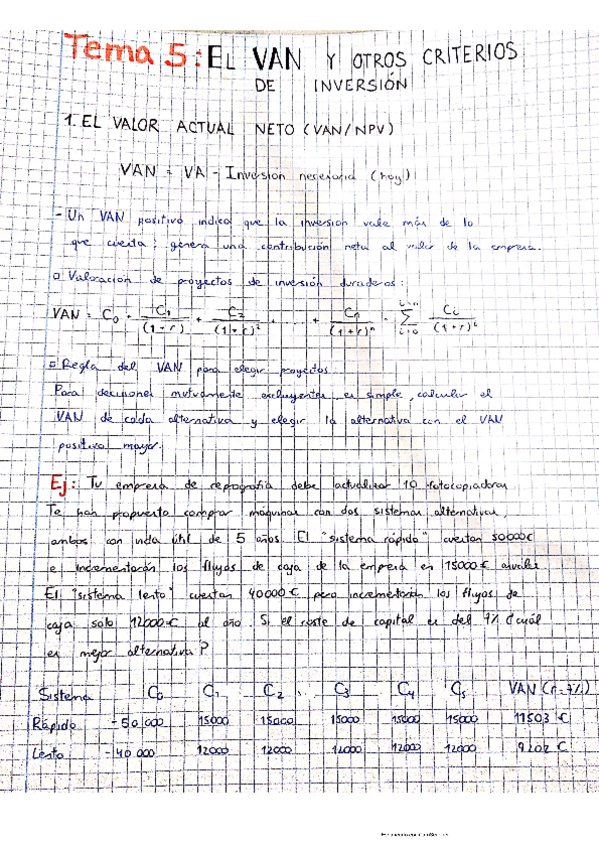 Tema 5: EL VAN Y OTROS CRITERIOS
DE INVERSIÓN
1. EL VALOR ACTUAL NETO (VAN/NPV)
VAN = VA - Inversion necesaria (hoy)
- Un VAN positivo indica que la inversion vale más de lo
que cuesta; genera una contribución neta al valor de la empresa.
Valoración de proyectos de inversión duraderos:
VAN = C₀ + C₁/(1+r) + C₂/(1+r)² + ... + Cₙ/(1+r)ⁿ = Σ (i=0, i=n) Cᵢ/(1+r)ⁱ
Regla del VAN para elegir proyectos
Para decisiones mutuamente excluyentes es simple, calcular el
VAN de cada alternativa y elegir la alternativa con el VAN
positivo mayor.
Ej: Tu empresa de reprografía debe actualizar 10 fotocopiadoras
Te han propuesto comprar máquinas con dos sistemas alternativos,
ambos con vida útil de 5 años. El "sistema rápido" cuestan 50000€
e incrementarán los flujos de caja de la empresa en 15000€ anuales
El "sistema lento" cuestan 40000€ pero incrementarán los flujos de
caja solo 12000€ al año. Si el coste de capital es del 7% ¿cuál
es mejor alternativa?
Sistema C₀ C₁ C₂ C₃ C₄ C₅ VAN (r=7%)
Rápido -50 000 15000 15000 15000 15000 15000 11503 €
Lento -40 000 12000 12000 12000 12000 12000 9202 €